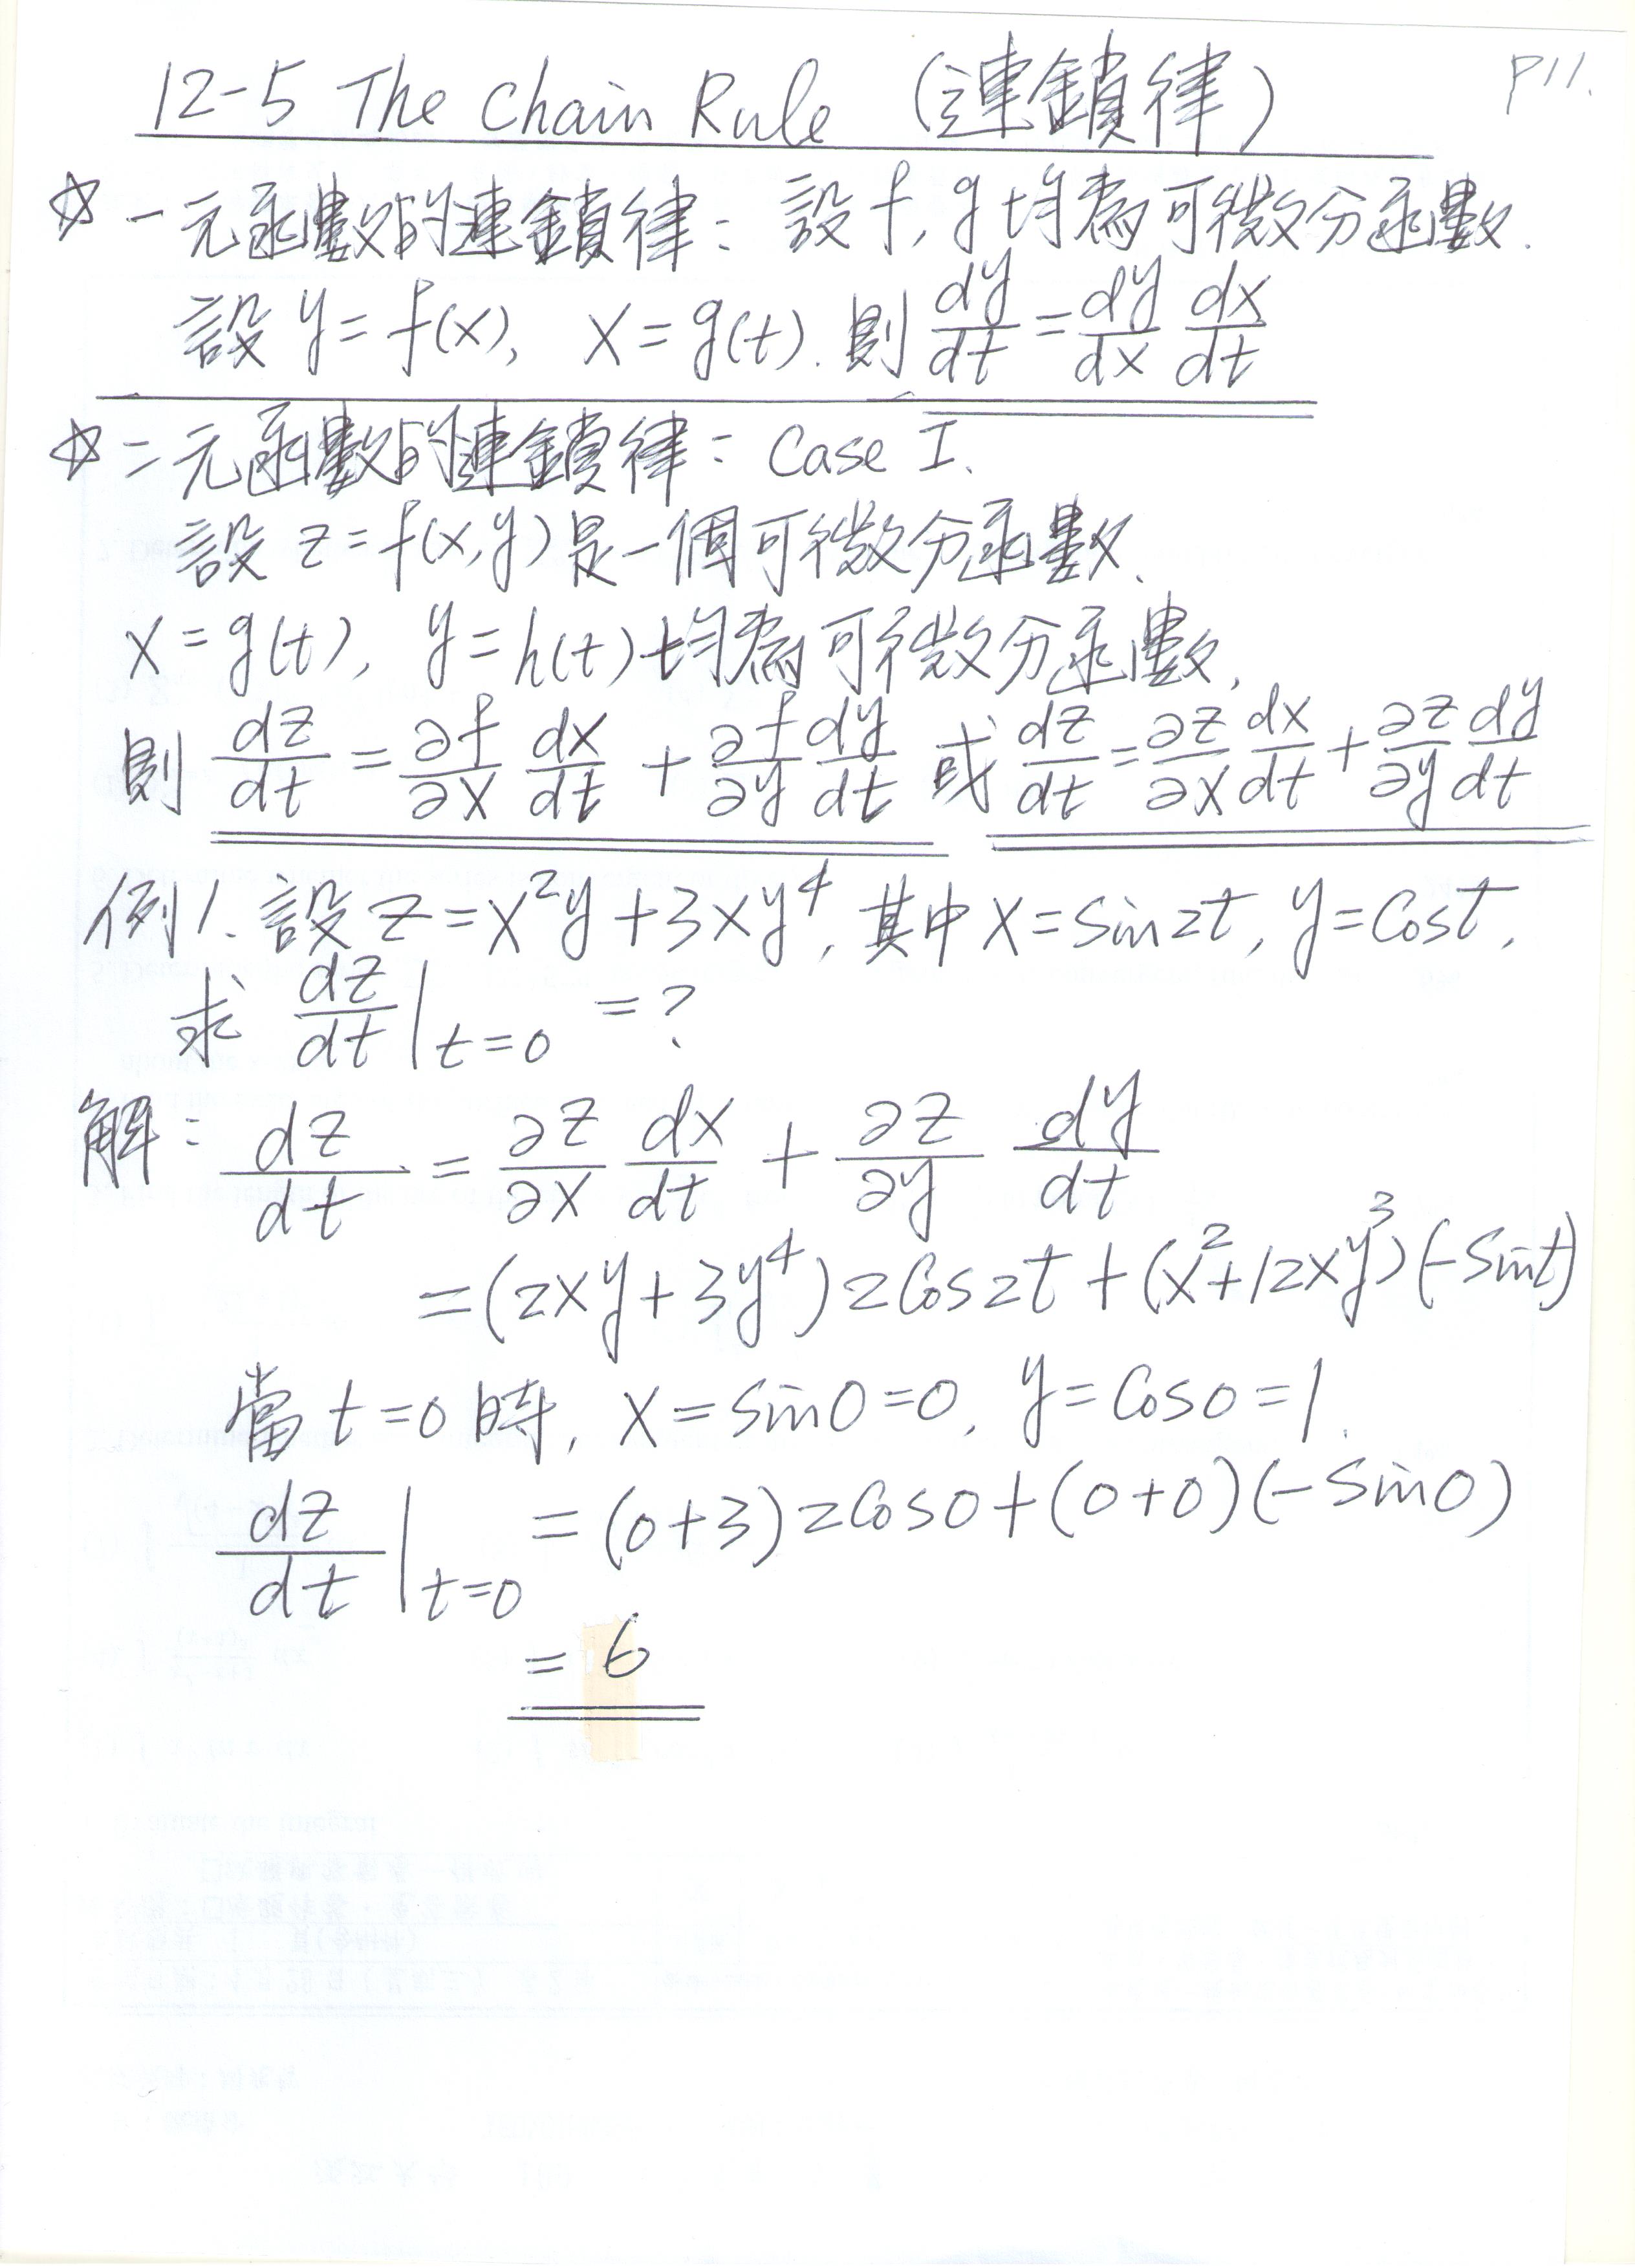 P11.
12-5 The Chain Rule (連鎖律)
☆ 一元函數的連鎖律: 設 f, g 均為可微分函數.
設 y = f(x), x = g(t). 則 dy/dt = dy/dx dx/dt
☆ 二元函數的連鎖律: Case I.
設 z = f(x,y) 是一個可微分函數.
x = g(t), y = h(t) 均為可微分函數,
則 dz/dt = ∂f/∂x dx/dt + ∂f/∂y dy/dt 或 dz/dt = ∂z/∂x dx/dt + ∂z/∂y dy/dt
例1. 設 z = x²y + 3xy⁴, 其中 x = sin2t, y = cost,
求 dz/dt |t=0 = ?
解: dz/dt = ∂z/∂x dx/dt + ∂z/∂y dy/dt
= (2xy + 3y⁴) 2cos2t + (x² + 12xy³)(-sint)
當 t = 0 時, x = sin0 = 0, y = cos0 = 1.
dz/dt |t=0 = (0+3) 2cos0 + (0+0)(-sin0)
= 6